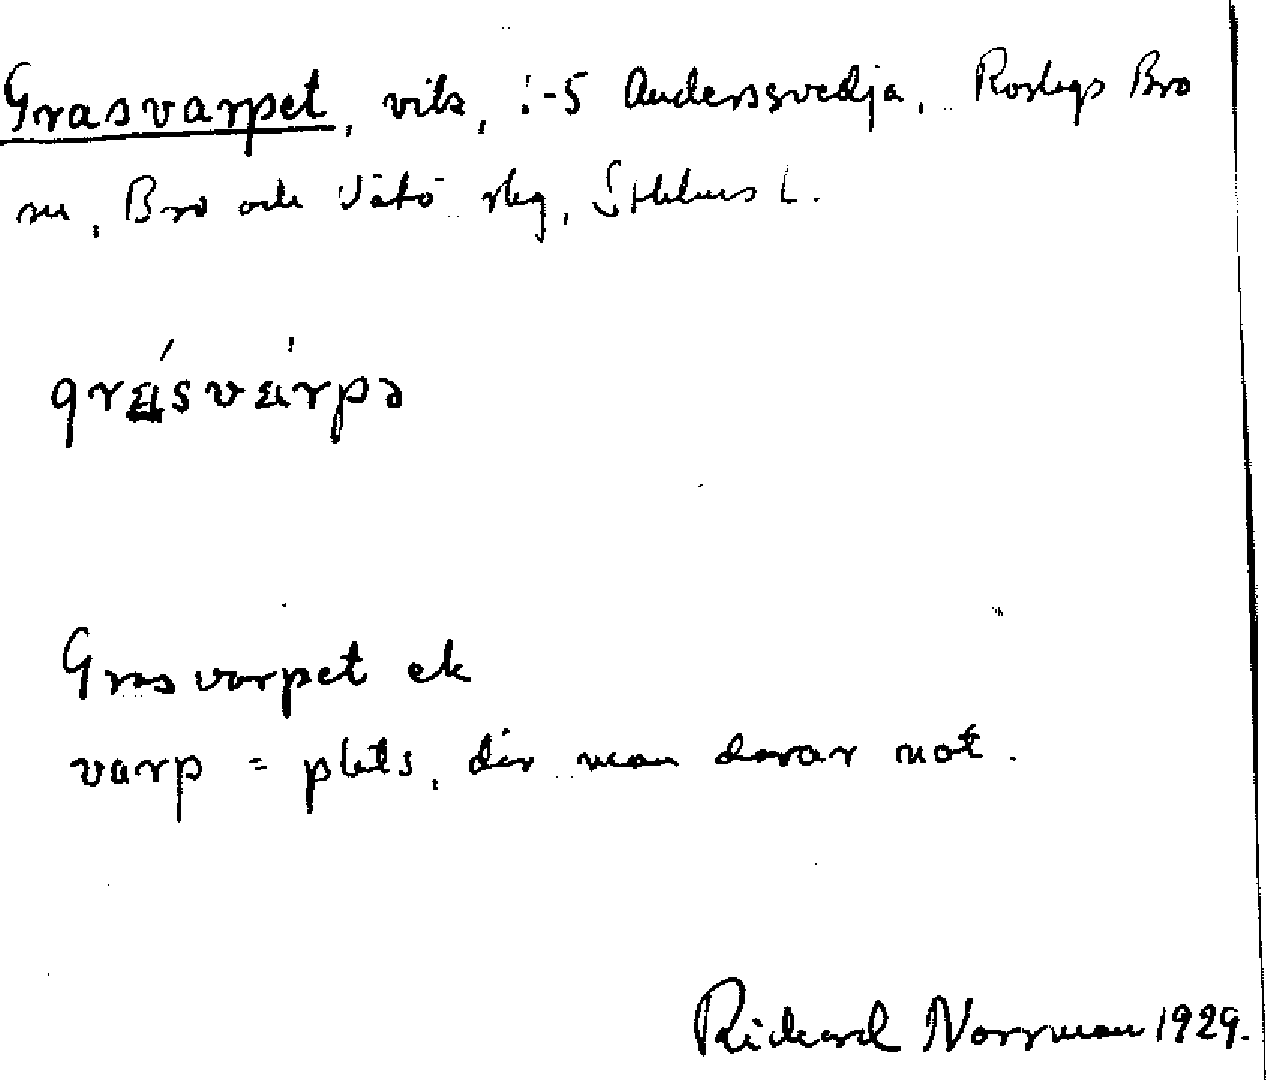 Grasvarpet, vik, i-5 Anderssvedja, Roslags Bro
sn, Bro och Vätö slg, Sthlms L.
grásvárpə
Grasvarpet ek
varp = plats, där man drar not.
Rickard Norrman 1929.